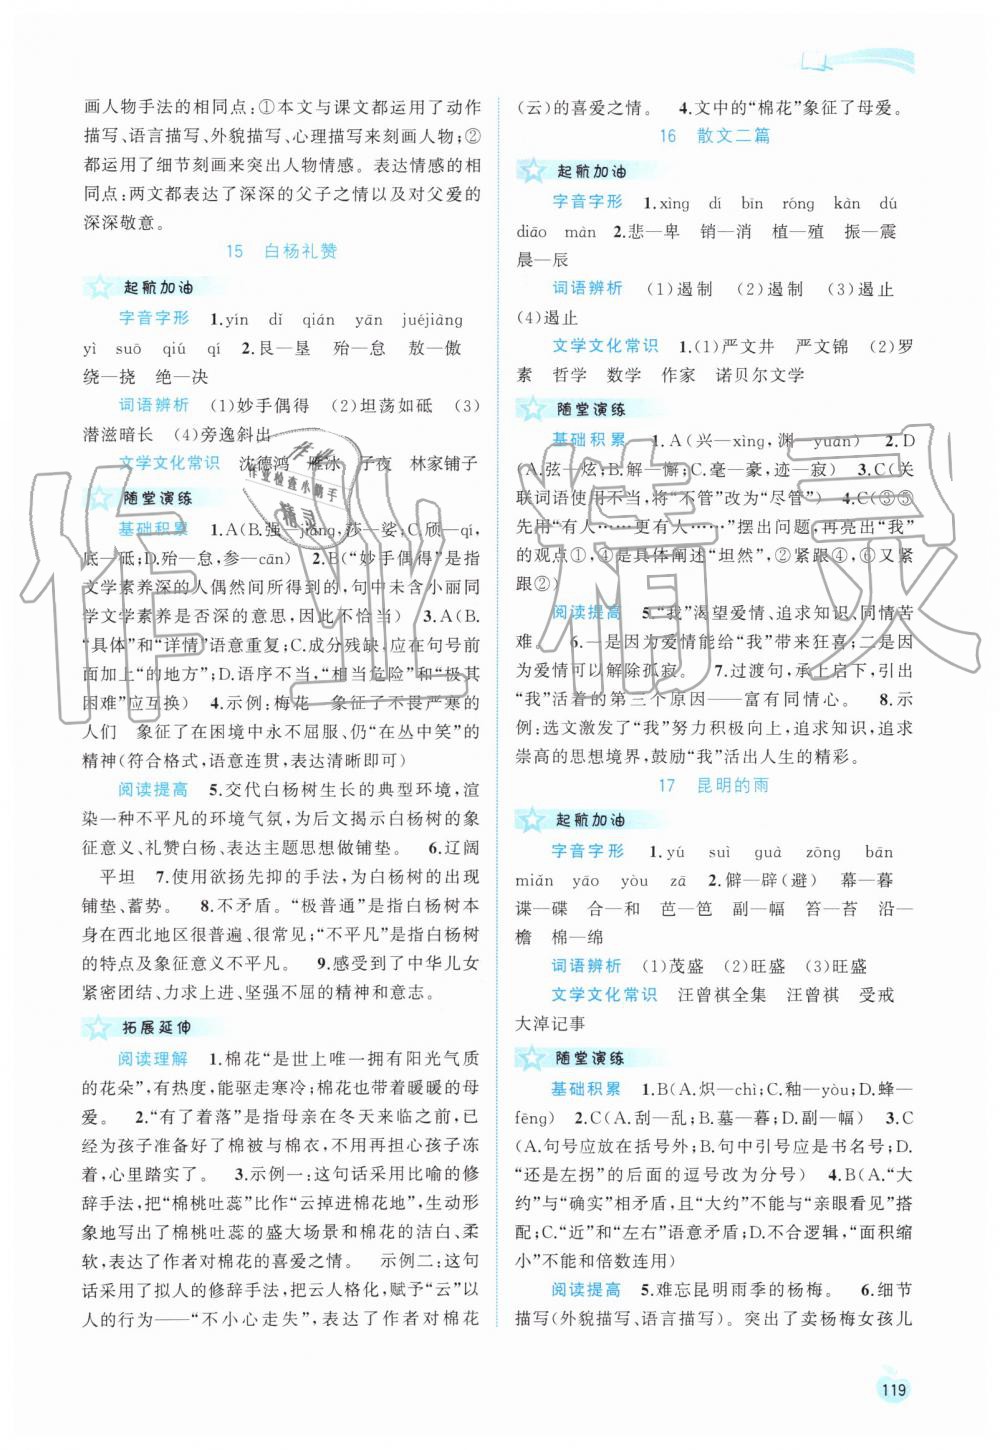 画人物手法的相同点:①本文与课文都运用了动作
描写、语言描写、外貌描写、心理描写来刻画人物;②
都运用了细节刻画来突出人物情感。表达情感的相
同点:两文都表达了深深的父子之情以及对父爱的
深深敬意。
15 白杨礼赞
起航加油
字音字形 1.yín dǐ qián yān juéjiàng
yì suō qiú qí 2.艮—垦 殆—怠 敖—傲
绕—挠 绝—决
词语辨析 (1)妙手偶得 (2)坦荡如砥 (3)
潜滋暗长 (4)旁逸斜出
文学文化常识 沈德鸿 雁冰 子夜 林家铺子
随堂演练
基础积累 1.A(B.强—jiàng,莎—娑;C.颀—qí,
底—砥;D.殆—怠,参—cān) 2.B(“妙手偶得”是指
文学素养深的人偶然间所得到的,句中未含小丽同
学文学素养是否深的意思,因此不恰当) 3.A(B.
“具体”和“详情”语意重复;C.成分残缺,应在句号前
面加上“的地方”;D.语序不当,“相当危险”和“极其
困难”应互换) 4.示例:梅花 象征了不畏严寒的
人们 象征了在困境中永不屈服、仍“在丛中笑”的
精神(符合格式,语意连贯,表达清晰即可)
阅读提高 5.交代白杨树生长的典型环境,渲
染一种不平凡的环境气氛,为后文揭示白杨树的象
征意义、礼赞白杨、表达主题思想做铺垫。 6.辽阔
平坦 7.使用欲扬先抑的手法,为白杨树的出现
铺垫、蓄势。 8.不矛盾。“极普通”是指白杨树本
身在西北地区很普遍、很常见;“不平凡”是指白杨树
的特点及象征意义不平凡。 9.感受到了中华儿女
紧密团结、力求上进、坚强不屈的精神和意志。
拓展延伸
阅读理解 1.棉花“是世上唯一拥有阳光气质
的花朵”,有热度,能驱走寒冷;棉花带着暖暖的母
爱。 2.“有了着落”是指母亲在冬天来临之前,已
经为孩子准备好了棉被与棉衣,不用再担心孩子挨
冻着,心里踏实了。 3.示例一:这句话采用比喻的修
辞手法,把“棉桃吐蕊”比作“云掉进棉花地”,生动形
象地写出了棉桃吐蕊的盛大场景和棉花的洁白、柔
软,表达了作者对棉花的喜爱之情。 示例二:这句
话采用了拟人的修辞手法,把云人格化,赋予“云”以
人的行为——“不小心走失”,表达了作者对棉花
(云)的喜爱之情。 4.文中的“棉花”象征了母爱。
16 散文二篇
起航加油
字音字形 1.xìng dí bīn róng kàn dú
diāo mán 2.悲—卑 销—消 植—殖 振—震
晨—辰
词语辨析 (1)遏制 (2)遏制 (3)遏止
(4)遏止
文学文化常识 1.(1)严文井 严文锦 (2)罗
素 哲学 数学 作家 诺贝尔文学
随堂演练
基础积累 1.A(兴—xìng,渊—yuān) 2.D
(A.弦—炫;B.解—懈;C.毫—豪,迹—寂) 3.C(关
联词语使用不当,将“不管”改为“尽管”) 4.C(③⑤
先用“有人……更有人……”摆出问题,再亮出“我”
的观点①,④是具体阐述“坦然”,②紧跟④,⑥又紧
跟②)
阅读提高 5.“我”渴望爱情、追求知识、同情苦
难。 6.一是因为爱情能给“我”带来狂喜;二是因
为爱情可以解除孤寂。 7.过渡句,承上启下,引出
“我”活着的第三个原因——富有同情心。 8.示
例:选文激发了“我”努力积极向上,追求知识,追求
崇高的思想境界,鼓励“我”活出人生的精彩。
17 昆明的雨
起航加油
字音字形 1.yú suì guà zōng bān
miǎn yāo yòu zā 2.僻—辟(避) 幕—暮
谍—碟 合—和 芭—笆 副—幅 苔—苔 沿—
檐 棉—绵
词语辨析 (1)茂盛 (2)旺盛 (3)旺盛
文学文化常识 汪曾祺全集 汪曾祺 受戒
大淖记事
随堂演练
基础积累 1.B(A.炽—chì;C.釉—yòu;D.蜂—
fēng) 2.C(A.刮—乱;B.墓—暮;D.副—幅) 3.C
(A.句号应放在括号外;B.句中引号应是书名号;D.
“还是左拐”的后面的逗号改为分号) 4.B(A.“大
约”与“确实”相矛盾,且“大约”不能与“亲眼看见”搭
配;C.“近”和“左右”语意矛盾;D.不合逻辑,“面积缩
小”不能和倍数连用)
阅读提高 5.难忘昆明雨季的杨梅。 6.细节
描写(外貌描写、语言描写)。突出了卖杨梅女孩儿
119
作业精灵
作业
作业检查小帮手
精灵